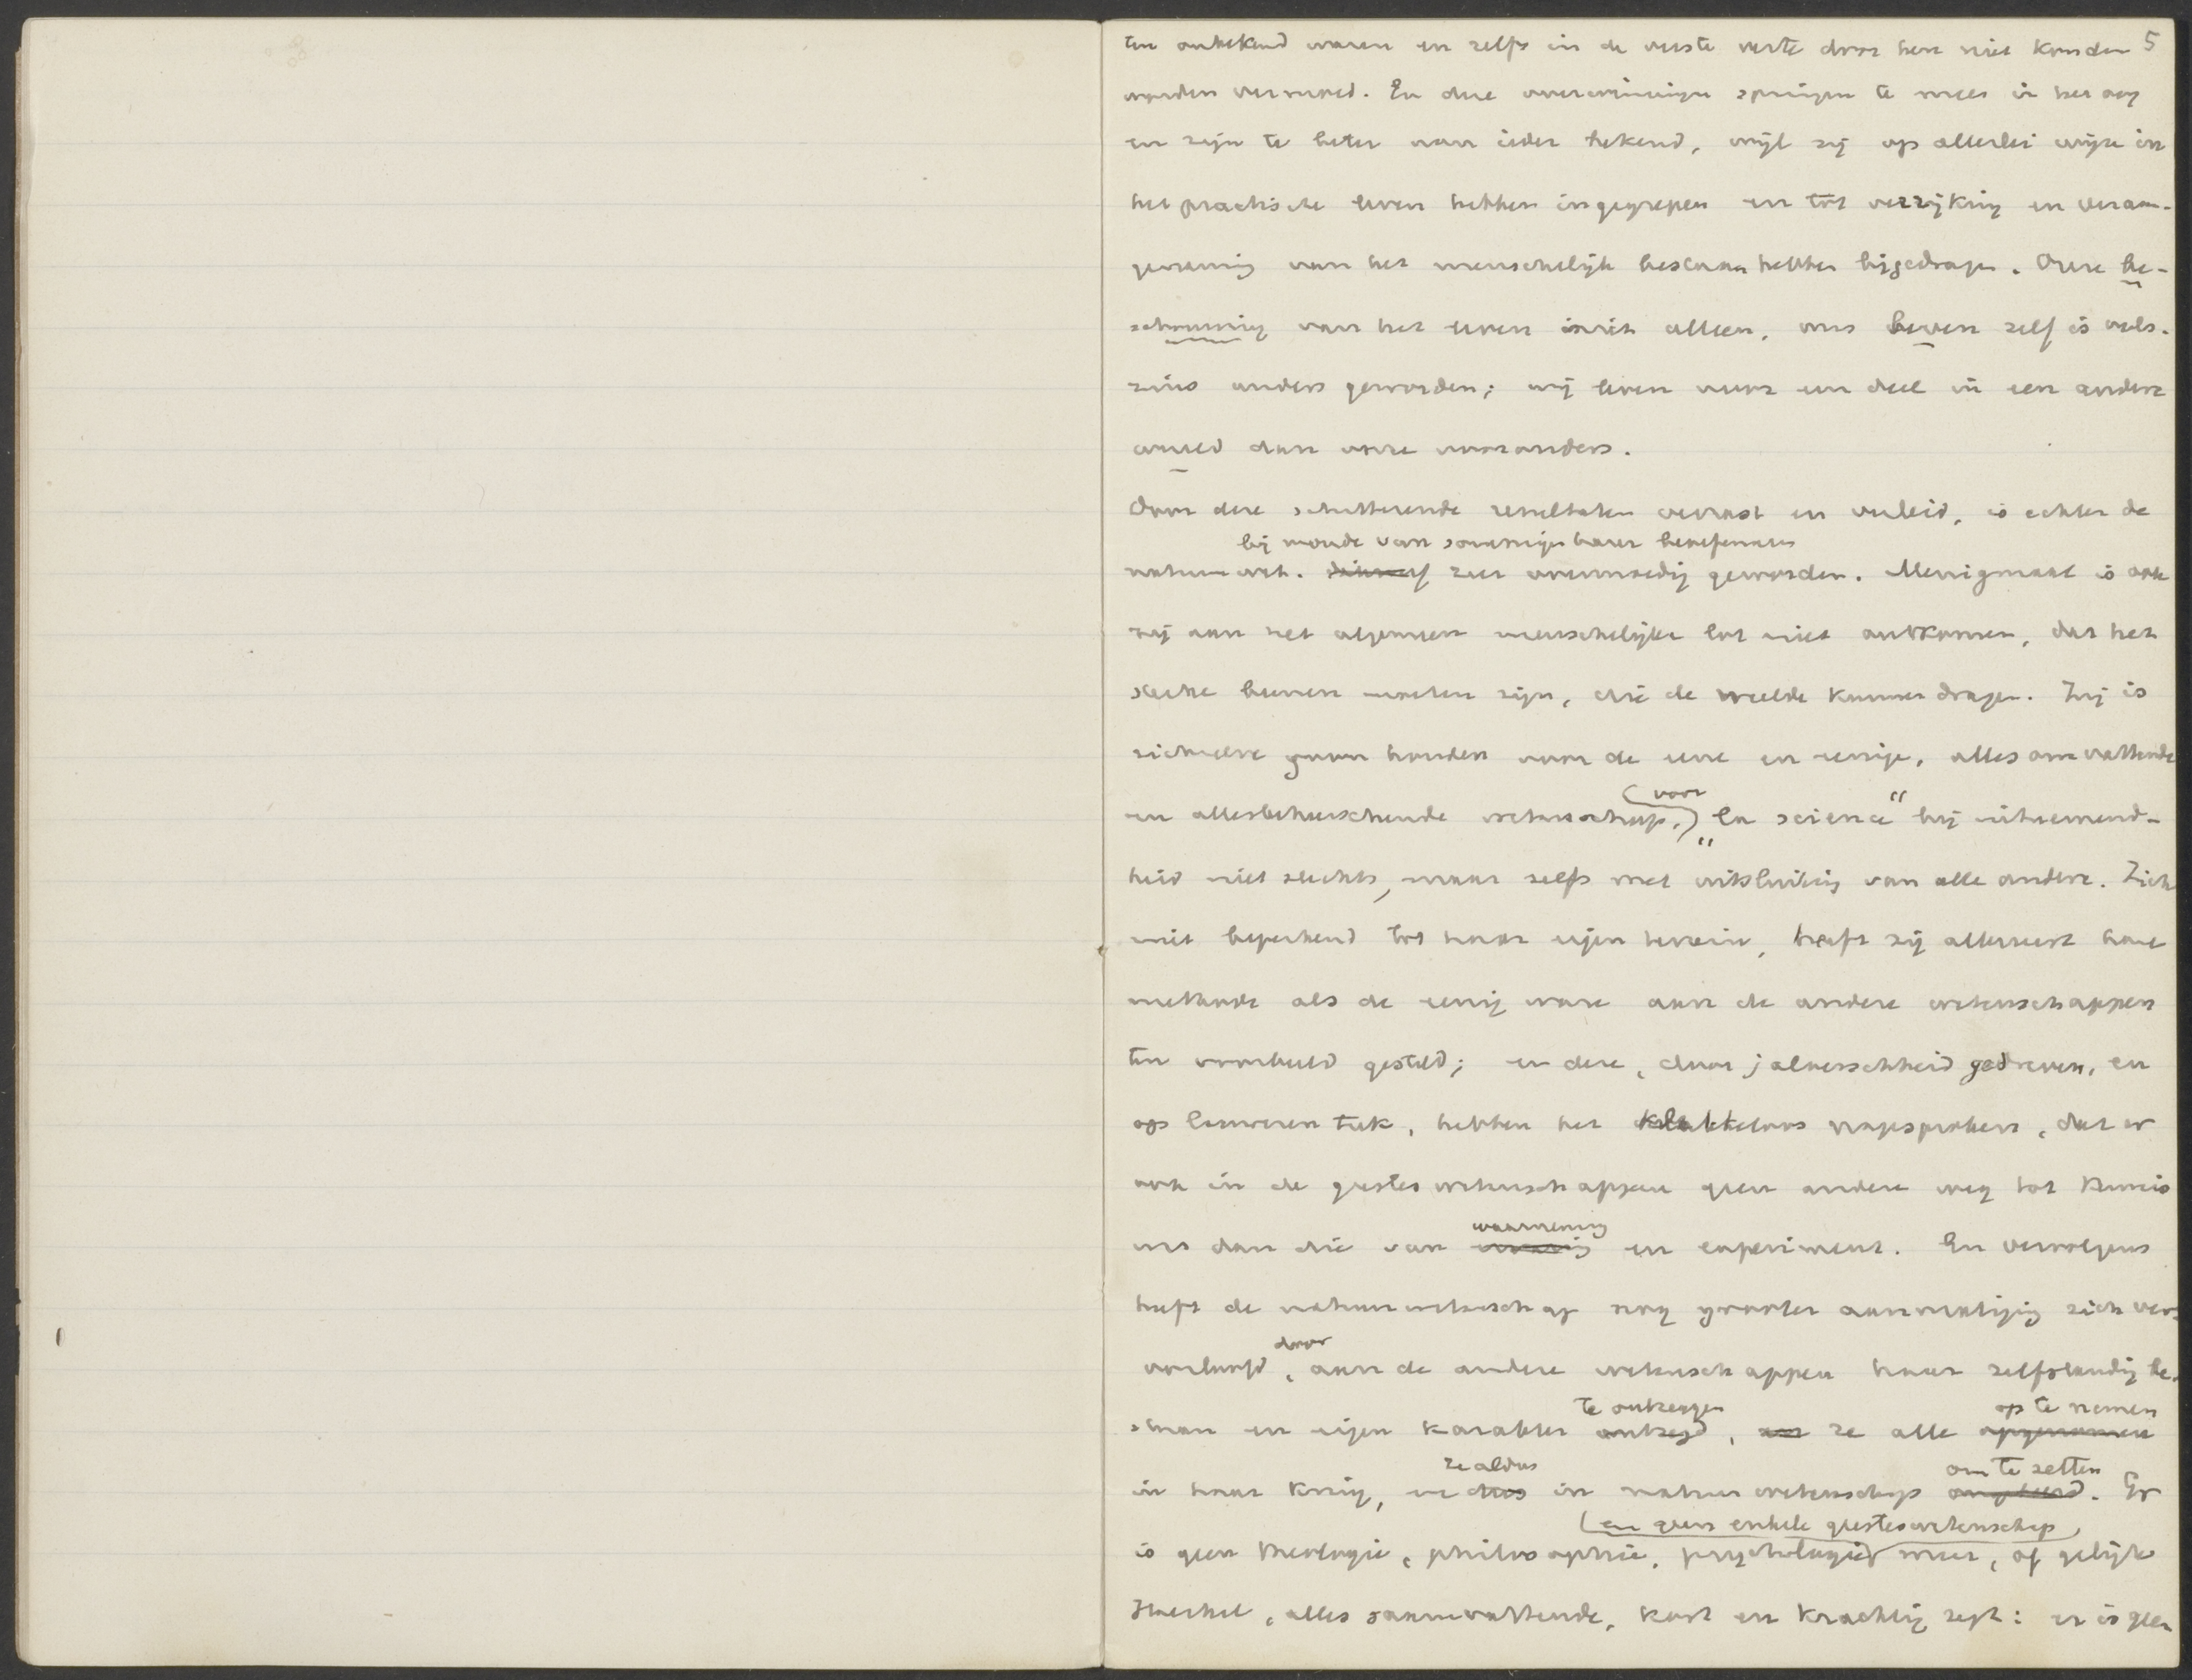 ten onbekend waren en zelfs in de verste verte door hen niet konden 5
worden vermoed. En deze overwinningen springen te meer in het oog
en zijn te beter aan ieder bekend, wijl zij op allerlei wijze in
het practische leven hebben ingegrepen en tot verrijking en veraan-
genaming van het menschelijk bestaan hebben bijgedragen. Onze be-
schouwing van het leven is niet alleen, ons leven zelf is veels-
zins anders geworden; wij leven voor een deel in een andere
wereld dan onze voorouders.
Door deze schitterende resultaten verrast en verleid, is echter de
bij monde van sommigen harer beoefenaars
natuurwet. zeer overmoedig geworden. Menigmaal is ook
zij aan het algemeen menschelijke lot niet ontkomen, dat het
sterke beenen moeten zijn, die de weelde kunnen dragen. Zij is
zichzelve gaan houden voor de eene en eenige, allesomvattende
voor
en allesbeheerschende wetenschap, „la science" bij uitnemend-
heid niet slechts, maar zelfs met uitsluiting van alle andere. Zich
niet beperkend tot haar eigen terrein, heeft zij allereerst haar
methode als de eenig ware aan de andere wetenschappen
ten voorbeeld gesteld; en deze, door jaloerschheid gedreven, en
op lauweren tuk, hebben het klakkeloos nagesproken, dat er
ook in de geesteswetenschappen geen andere weg tot kennis
waarneming
was dan die van en experiment. En vervolgens
heeft de natuurwetenschap nog grooter aanmatiging zich ver-
door
oorloofd, aan de andere wetenschappen haar zelfstandig be-
te ontzeggen op te nemen
staan en eigen karakter ontzegd, en ze alle opgenomen
ze aldus om te zetten
in haar kring, en dus in natuurwetenschap omgezet. Er
en geen enkele geesteswetenschap
is geen theologie, philosophie, psychologie meer, of gelijk
Haeckel, alles saamvattende, kort en krachtig zegt: er is geen